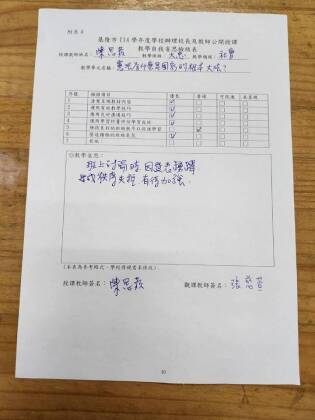 附表4
基隆市 114 學年度學校辦理校長及教師公開授課
教學自我省思檢核表
授課教師姓名：陳思菽 教學班級：六忠 教學領域：社會
教學單元名稱：憲法為什麼是國家的根本大法？
序號 檢核項目 優良 普通 可改進 未呈現
1 清楚呈現教材內容 ✓
2 運用有效教學技巧 ✓
3 應用良好溝通技巧 ✓
4 運用學習評量評估學習成效 ✓
5 維持良好的班級秩序以促進學習 ✓
6 營造積極的班級氣氛 ✓
7 其他
◎教學省思：
班上討論時，因發言踴躍，
造成秩序失控，有待加強。
(本表為參考格式，學校得視需求修改)
授課教師簽名：陳思菽 觀課教師簽名：張慈萱
10